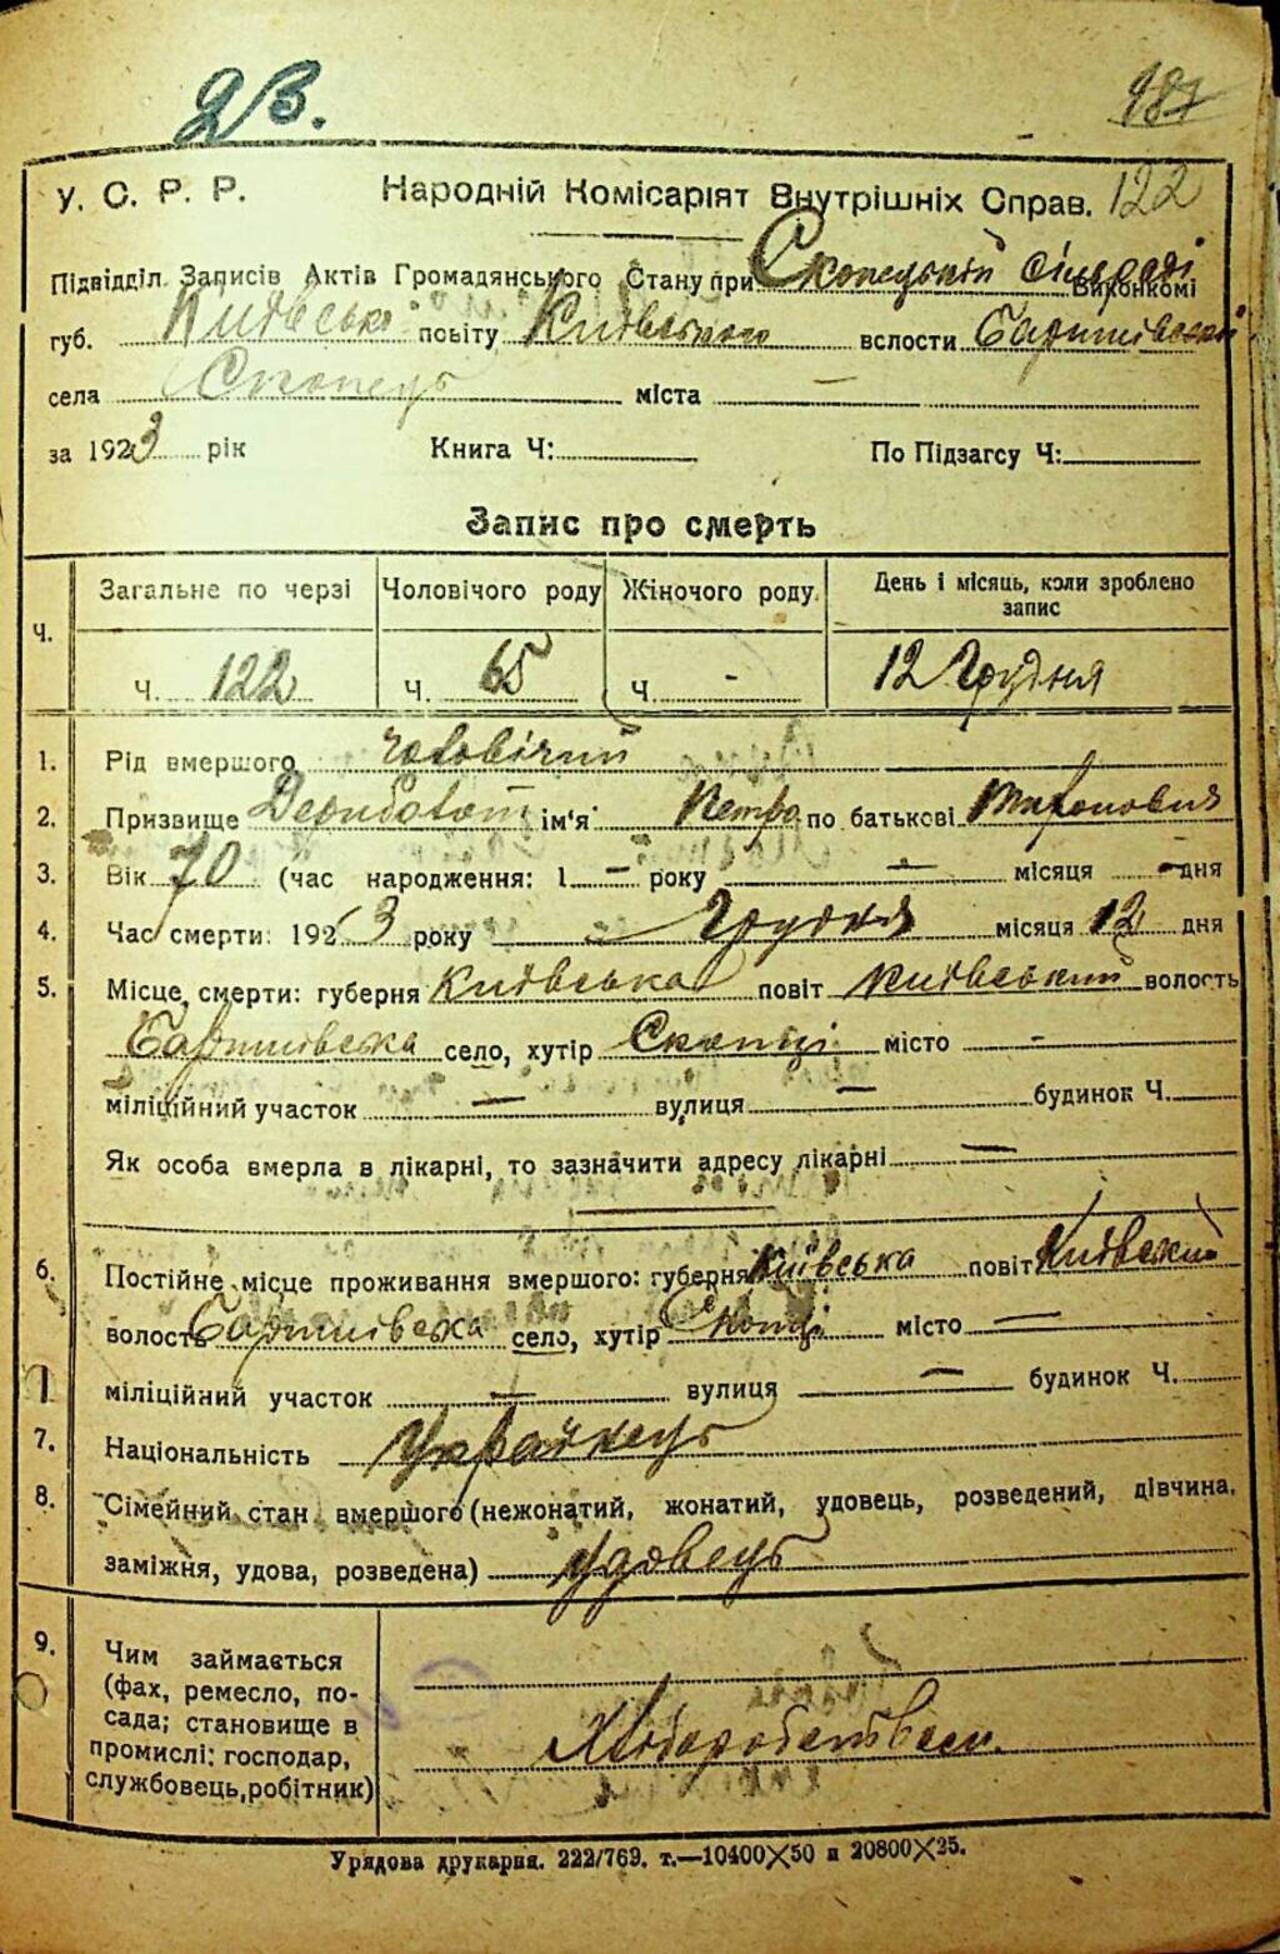 2В.
187
У. С. Р. Р. Народній Комісаріят Внутрішніх Справ. 122
Підвідділ Записів Актів Громадянського Стану при Скопецькій сільраді Виконкомі
губ. Київської повіту Київського вслости Баришівської
села Скопець міста —
за 1923 рік Книга Ч: По Підзагсу Ч:
Запис про смерть
Ч. Загальне по черзі Чоловічого роду Жіночого роду. День і місяць, коли зроблено запис
Ч. 122 Ч. 65 Ч. - 12 Грудня
1. Рід вмершого чоловічий
2. Призвище ім'я Петро по батькові
3. Вік 70 (час народження: 1 — року — місяця — дня
4. Час смерти: 1923 року Грудня місяця 12 дня
5. Місце смерти: губерня Київська повіт Київський волость
Баришівська село, хутір Скопці місто —
міліційний участок — вулиця — будинок Ч.
Як особа вмерла в лікарні, то зазначити адресу лікарні —
6. Постійне місце проживання вмершого: губерня Київська повіт Київський
волость Баришівська село, хутір Скопці місто —
міліційний участок — вулиця — будинок Ч.
7. Національність Українець
8. Сімейний стан вмершого (нежонатий, жонатий, удовець, розведений, дівчина,
заміжня, удова, розведена) удовець
9. Чим займається
(фах, ремесло, по-
сада; становище в
промислі: господар,
службовець, робітник)
Хліборобством.
Урядова друкарня. 222/769. т.—10400×50 и 20800×25.